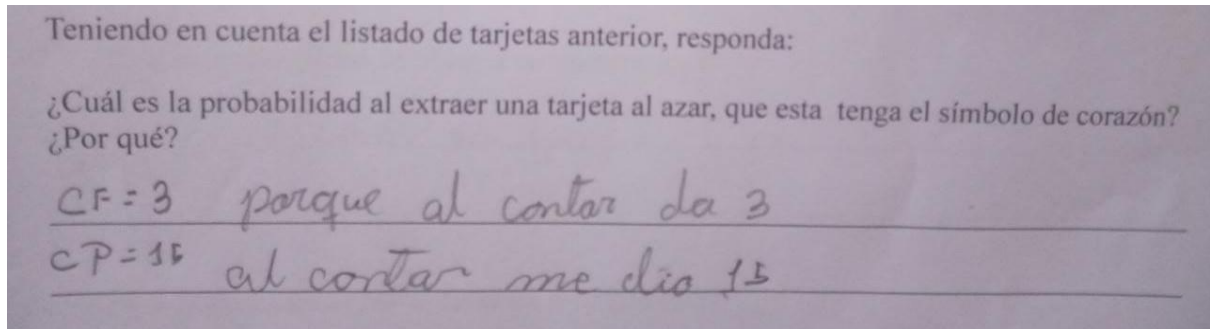 Teniendo en cuenta el listado de tarjetas anterior, responda:
¿Cuál es la probabilidad al extraer una tarjeta al azar, que esta tenga el símbolo de corazón?
¿Por qué?
CF = 3 porque al contar da 3
CP = 15 al contar me dio 15